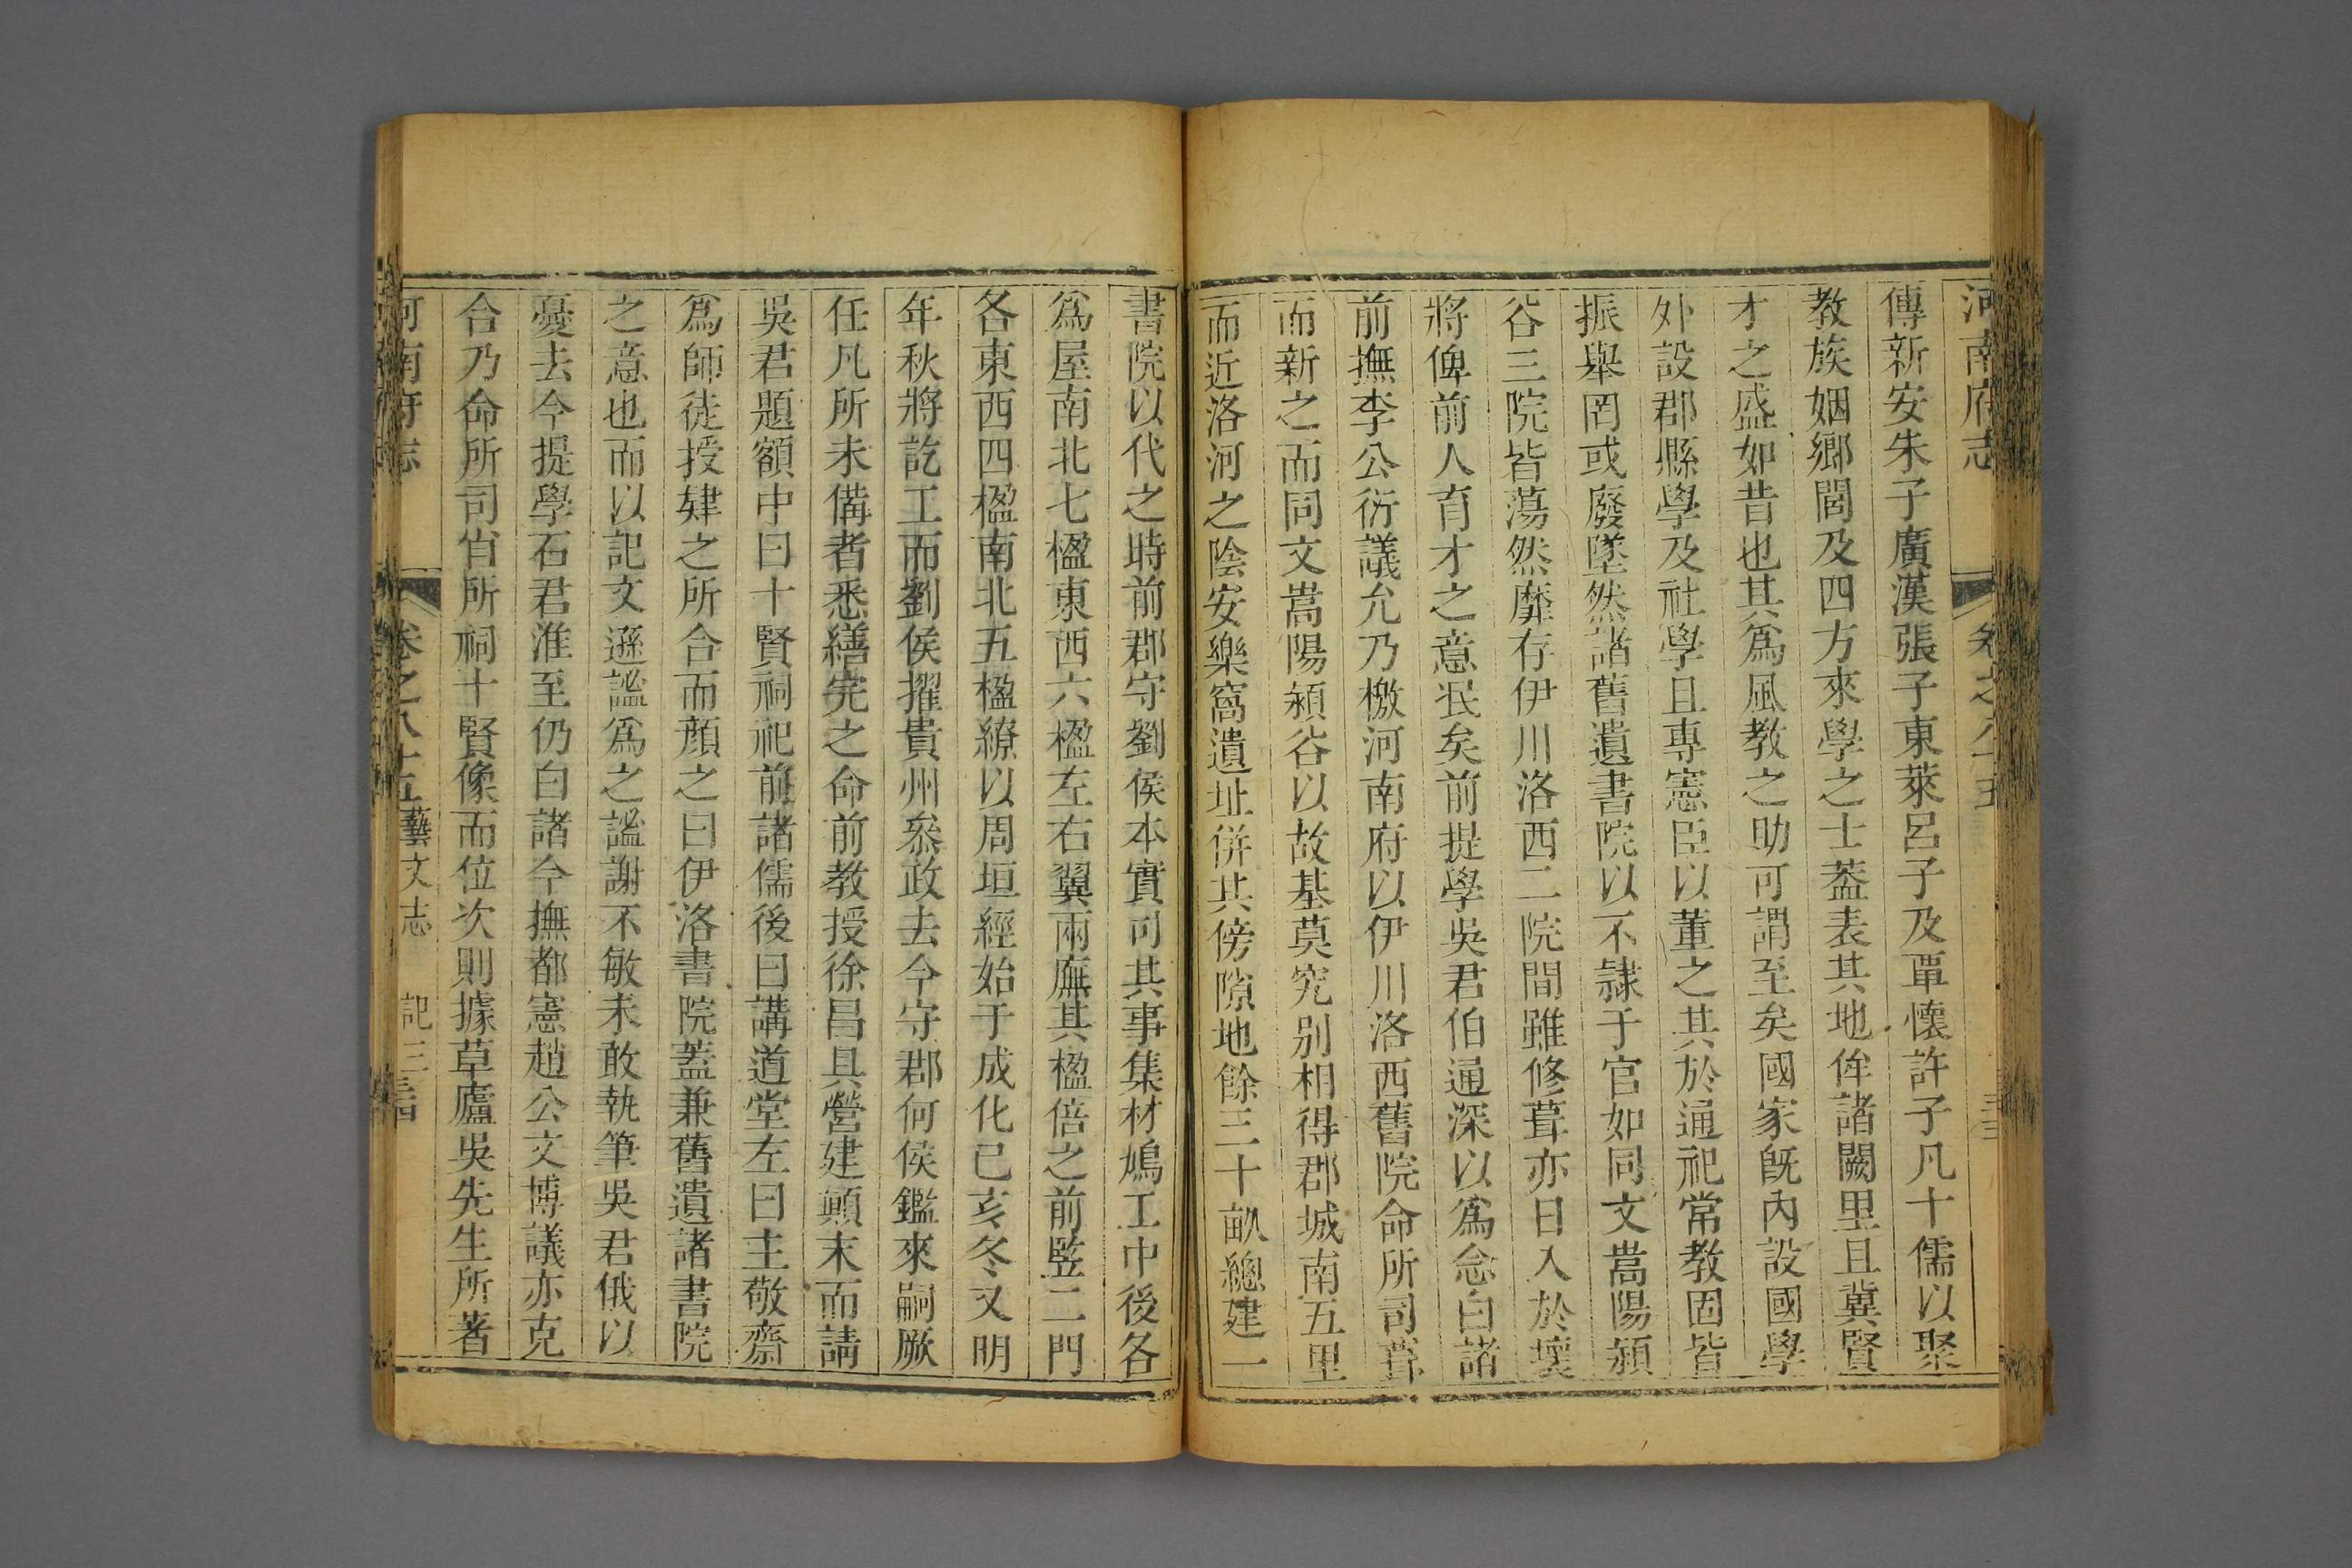 河南府志 卷之八十五
傳新安朱子廣漢張子東萊呂子及覃懷許子凡十儒以聚
教族姻鄉閭及四方來學之士葢表其地侔諸闕里且冀賢
才之盛如昔也其爲風教之助可謂至矣國家旣內設國學
外設郡縣學及社學且專憲臣以董之其於通祀常教固皆
振舉罔或廢墜然諸舊遺書院以不隷于官如同文嵩陽潁
谷三院皆蕩然靡存伊川洛西二院間雖修葺亦日入於壞
將俾前人育才之意泯矣前提學吳君伯通深以爲念白諸
前撫李公衍議允乃檄河南府以伊川洛西舊院命所司葺
而新之而同文嵩陽潁谷以故基莫究别相得郡城南五里
而近洛河之陰安樂窩遺址併其傍隙地餘三十畝總建一
書院以代之時前郡守劉侯本實司其事集材鳩工中後各
爲屋南北七楹東西六楹左右翼兩廡其楹倍之前竪二門
各東西四楹南北五楹繚以周垣經始于成化己亥冬又明
年秋將訖工而劉侯擢貴州叅政去今守郡何侯鑑來嗣厥
任凡所未備者悉繕完之命前教授徐昌具營建顛末而請
吳君題額中曰十賢祠祀前諸儒後曰講道堂左曰主敬齋
爲師徒授肄之所合而顔之曰伊洛書院葢兼舊遺諸書院
之意也而以記文遜謐爲之謐謝不敏未敢執筆吳君俄以
憂去今提學石君淮至仍白諸今撫都憲趙公文博議亦克
合乃命所司肖所祠十賢像而位次則據草廬吳先生所著
河南府志 卷之八十五 藝文志 記三